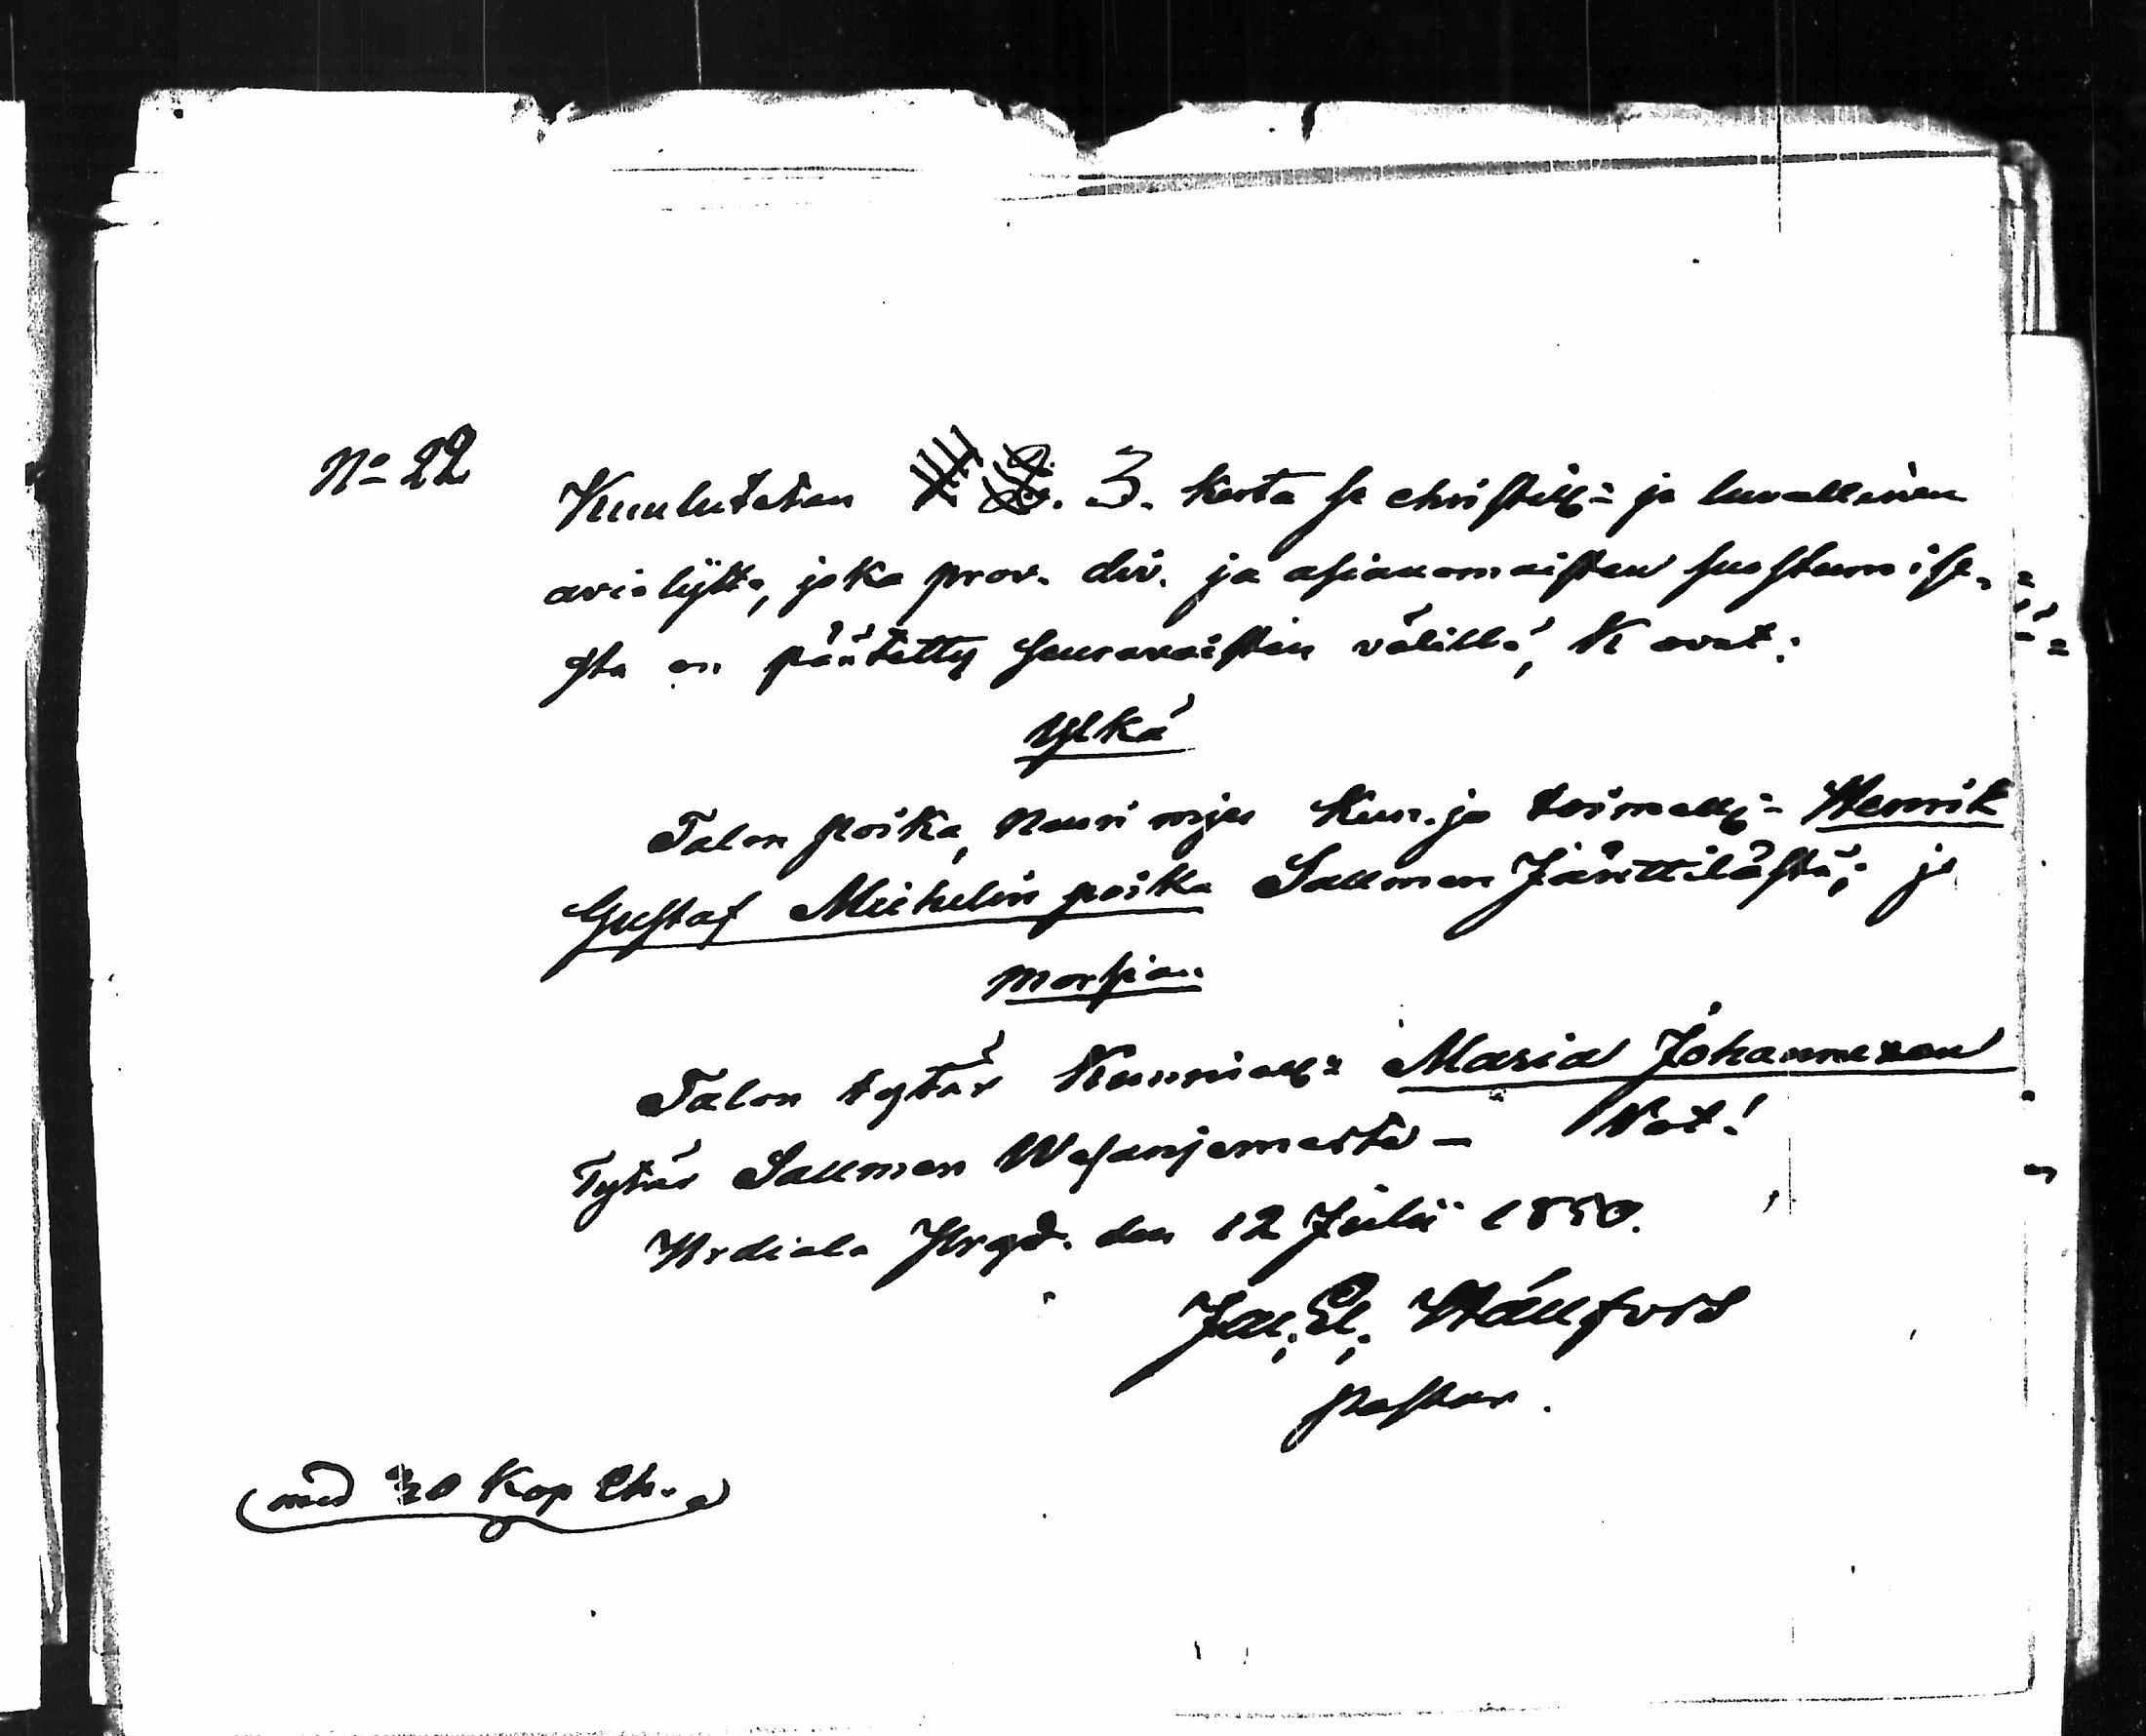 No 22
Kuulutetan 3. kerta se christill: ja luvallinen
avioliitto, joka prov. div. ja asianomaisten suostumise-
sta on päätetty seuravaisten välillä, K ovat:
Ylkä
Talon poika, nuori mies Kun. ja toimell: Henrik
Gustaf Michelin poika Salmen Jänttilästä; ja
morsian
Talon tytär Kunniall: Maria Johannexen
Tytär Salmen Wesanjemasta – Not!
Urdiala Prgd. den 12 Julii 1850.
Jac. El. Hällfors
pastor.
(med 20 Kop Ch.